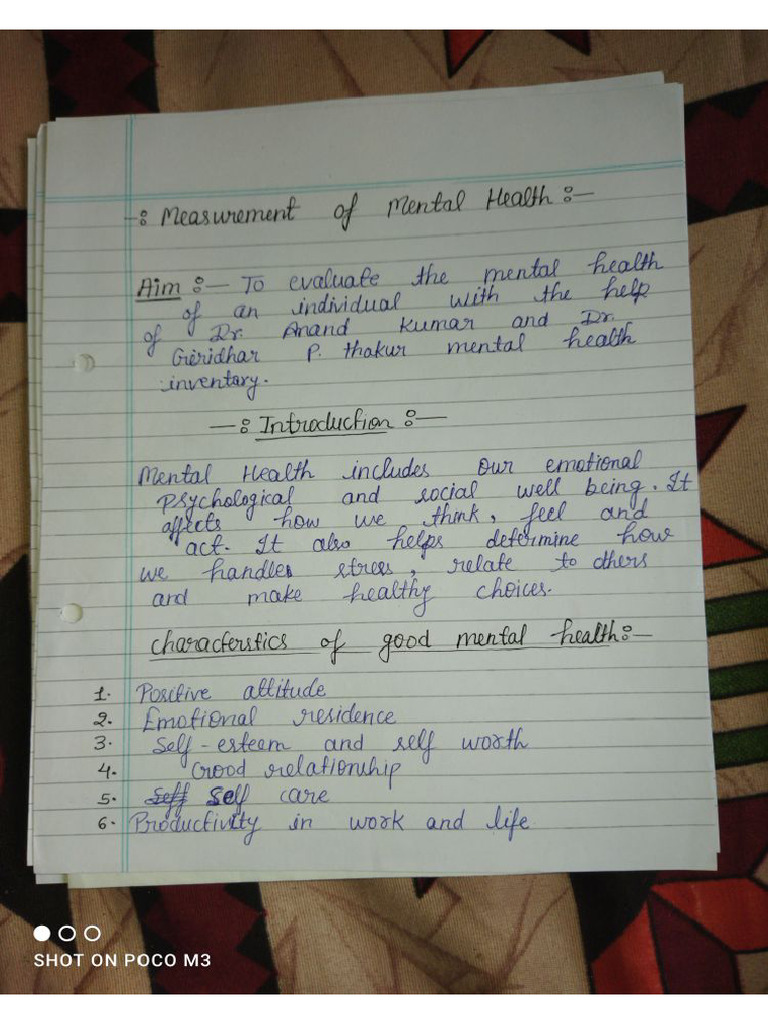 -: Measurement of Mental Health :-
Aim :- To evaluate the mental health
of an individual with the help
of Dr. Anand Kumar and Dr.
Giridhar P. thakur mental health
inventory.
-: Introduction :-
Mental Health includes our emotional
psychological and social well being. It
affects how we think, feel and
act. It also helps determine how
we handles stress, relate to others
and make healthy choices.
characterstics of good mental health:-
1. Positive attitude
2. Emotional residence
3. Self-esteem and self worth
4. Good relationship
5. Self care
6. Productivity in work and life
SHOT ON POCO M3